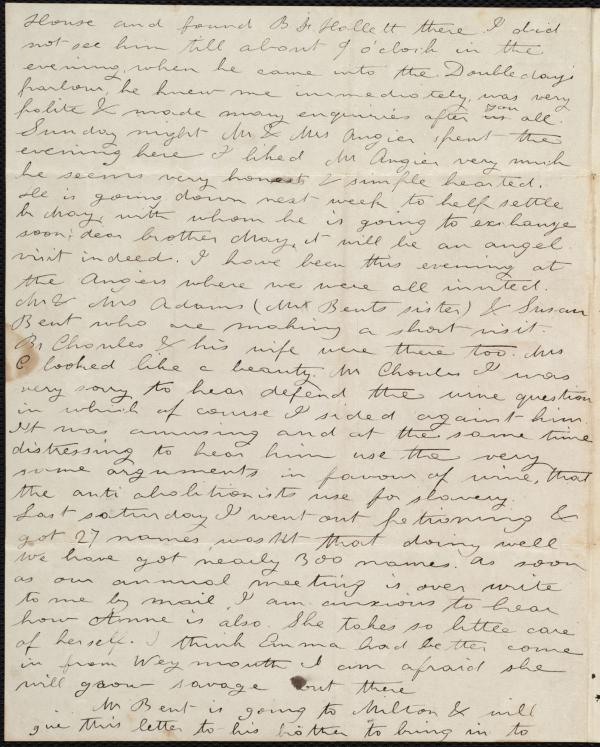 House and found B S Hallett there I did
not see him till about 9 o'clock in the
evening, when he came into the Doubleday's
parlour, he knew me immediately, was very
polite & made many enquiries after you all.
Sunday night Mr & Mrs Angier spent the
evening here I liked Mr Angier very much
he seems very honest & simple hearted.
He is going down next week to help settle
br May, with whom he is going to exchange
soon; dear brother May, it will be an angel
visit indeed. I have been this evening at
the Angiers where we were all invited.
Mr & Mrs Adams (Mr Bents sister) & Susan
Bent who are making a short visit.
Br Charles & his wife were there too. Mrs
C looked like a beauty. Mr Charles I was
very sorry to hear defend the wine question
in which of course I sided against him.
It was amusing and at the same time
distressing to hear him use the very
same arguments in favour of wine, that
the anti abolitionists use for slavery.
Last saturday I went out petioning &
got 27 names, was'nt that doing well
We have got nearly 300 names. As soon
as our annual meeting is over write
to me by mail, I am anxious to hear
how Anne is also. She takes so little care
of herself. I think Emma had better come
in from Weymouth I am afraid she
will grow savage out there
Mr Bent is going to Milton & will
give this letter to his brother to bring in to